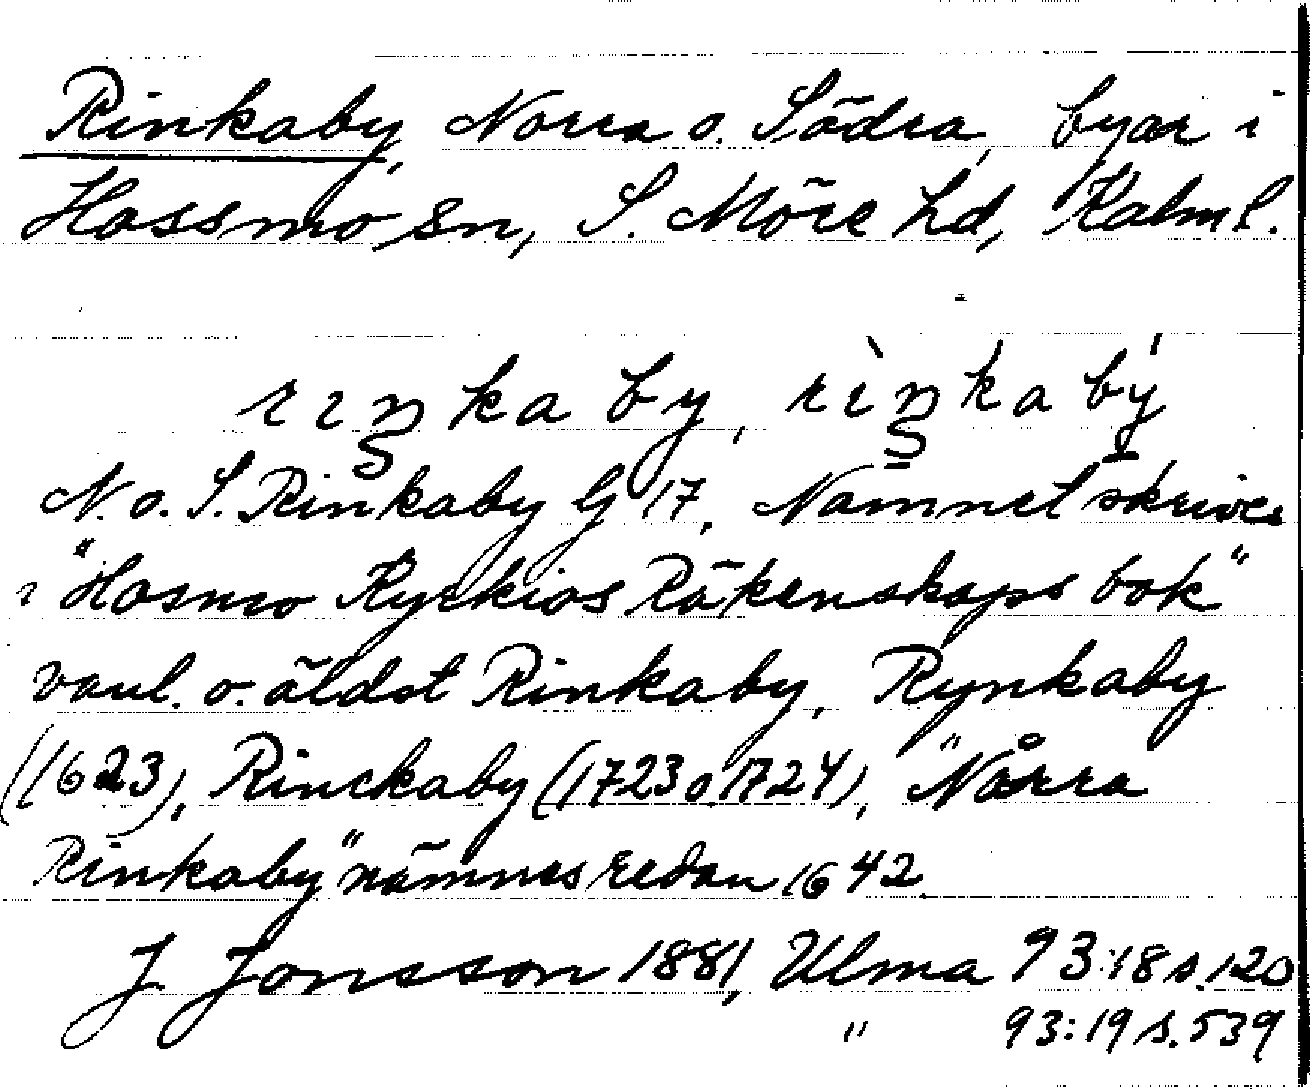 Rinkaby, Norra o. Södra, byar i
Hossmo sn, S. Möre hd, Kalm l.
rıŋkaby, rìŋkabý
N. o. S. Rinkaby G 17. Namnet skrives
i "Hosmo Kyrkios Räkenskaps bok"
vanl. o. äldst Rinkaby, Rynkaby
(1623), Rinckaby (1723 o. 1724), "Nårra
Rinkaby" nämnes redan 1642
J. Jonsson 1881, Ulma 93:18 s. 120
" 93:19 s. 539